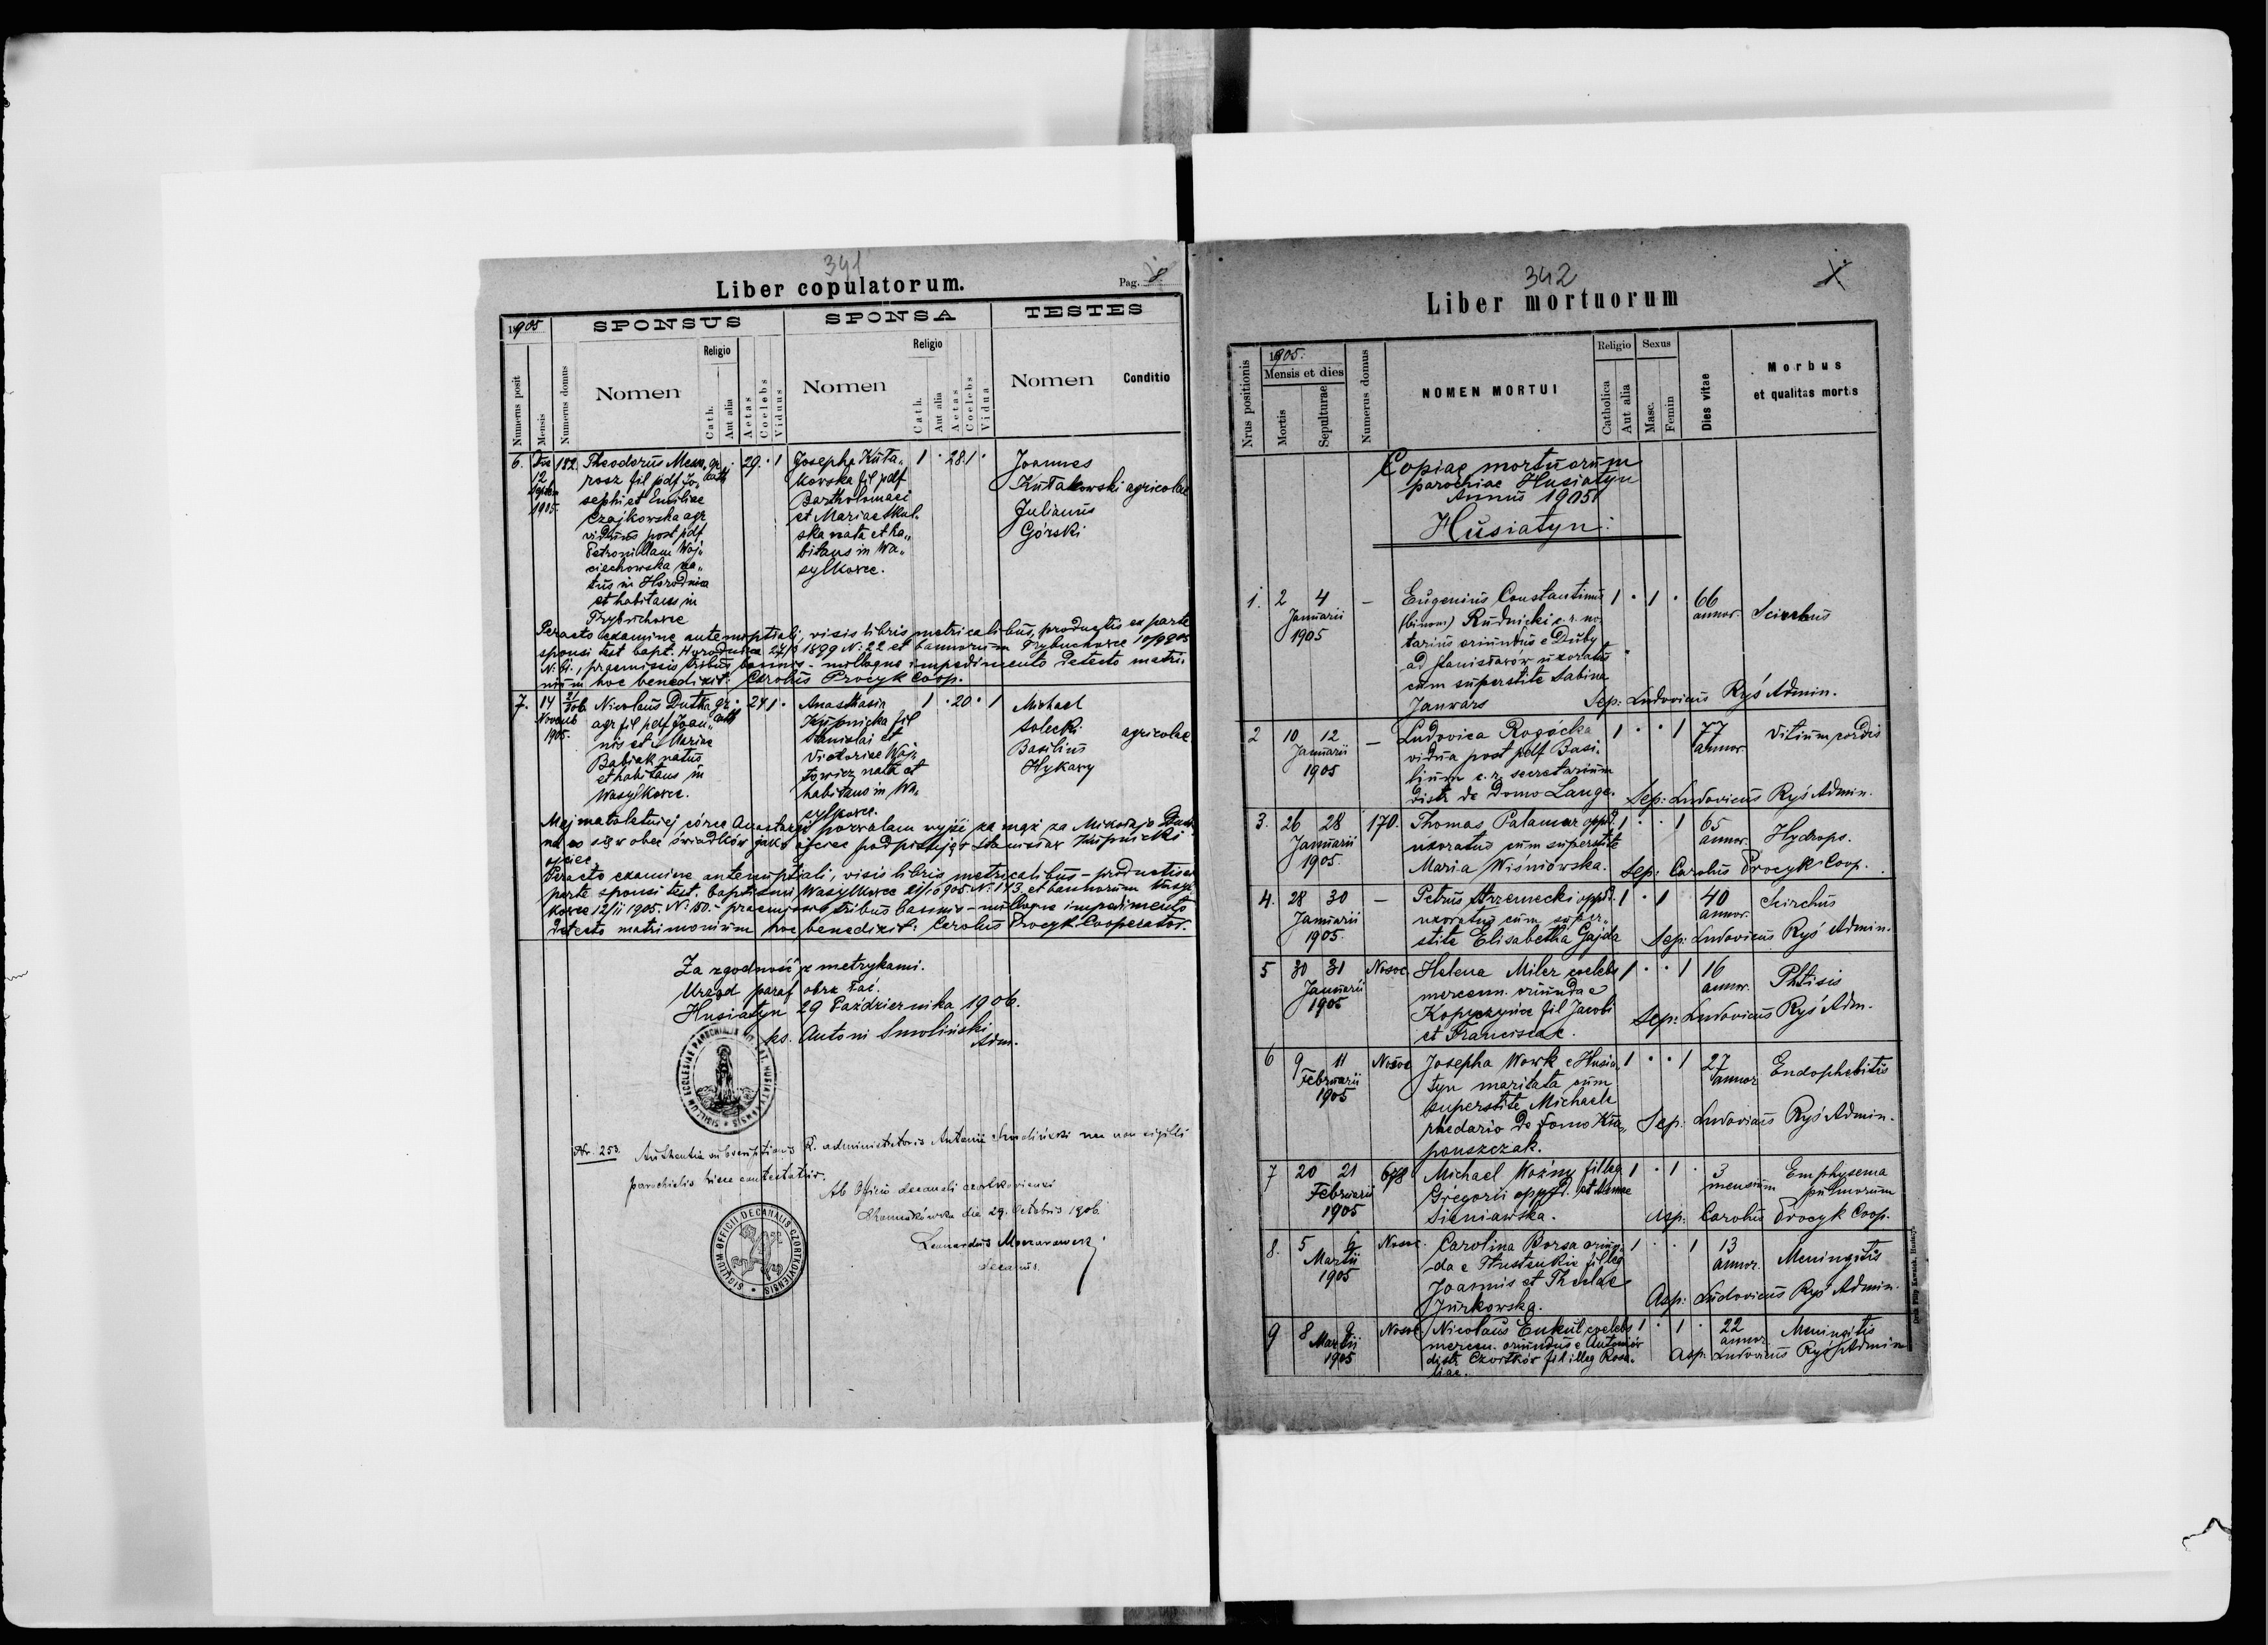 341
Liber copulatorum.
Pag. 8
1905
SPONSUS
SPONSA
TESTES
Numerus posit
Mensis
Numerus domus
Nomen
Religio
Cath.
Aut alia
Aetas
Coelebs
Viduus
Nomen
Religio
Cath.
Aut alia
Aetas
Coelebs
Vidua
Nomen
Conditio
6.
Die
12
Septem
1905.
182.
Theodorus Mosu
rosz fil pdf Jo„
sephi et Emiliae
Czajkowska agr
viduus post pdf
Petronillam Woj„
ciechowska na„
tus in Horodnica
et habitans in
Trybuchowce
gr. cath
29. · 1
Josepha Kuta„
kowska fil pdf
Bartholomaei
et Mariae Skal„
ska nata et ha„
bitans in Wa„
sylkowce.
1 · 28 1 ·
Joannes
Kutakowski agricolae
Julianus
Górski
Peracto examine antenuptiali, visis libris metricalibus, productis ex parte
sponsi test bapt. Horodnica 27/3 1899 N: 22 et bannorum Trybuchowce 10/9 905
N: 61., praemissis tribus bannis – nulloque impedimento detecto matri„
nium hoc benedixit: Carolus Procyk Coop.
7.
14
Novemb
1905.
Nicolaus Dutka gr. cath
agr fil pdf Joan„
nis et Mariae
Babiak natus
et habitans in
Wasylkowce.
24 1 ·
Anasthasia
Kupnicka fil
Stanislai et
Victoriae Wój„
towicz nata et
habitans in Wa„
sylkowce.
1 · 20 · 1
Michael
Solecki
Basilius
Hykawy
agricolae
Mej małoletniej córce Anastazyi pozwalam wyjść za mąż za Mikołaja Dutkę
na co się w obec świadków jako ojciec podpisuję Stanisław Kupnicki
ojciec
Peracto examine antenuptiali, visis libris metricalibus – productis ex
parte sponsi test. baptismi Wasylkowce 905 N: 143 et bannorum Wasyl
kowce 12/11 1905. N: 150. – praemissis tribus bannis – nulloque impedimento
detecto matrimonium hoc benedixit: Carolus Procyk Cooperator.
Za zgodność z metrykami.
Urząd paraf obrz łac.
Husiatyn 29 Października 1906.
ks. Antoni Smoliński
Adm.
SIGILLUM ECCLESIAE PAROCHIALIS RIT. LAT. HUSIATYNENSIS
Nr. 253.
Authentia subscriptionis R. administratoris Antonii Smoliński nec non sigilli
parochialis hisce contestatur.
Ab Officio decanali czortkoviensi
die 29. Octobris 1906
Leonardus
decanus.
SIGILLUM OFFICII DECANALIS CZORTKOVIENSIS
342
Liber mortuorum
Nrus positionis
1905.
Mensis et dies
Mortis
Sepulturae
Numerus domus
NOMEN MORTUI
Religio
Catholica
Aut alia
Sexus
Masc.
Femin
Dies vitae
Morbus
et qualitas mortis
Copiae mortuorum
parochiae Husiatyn
Annus 1905
Husiatyn:
1. 2 4
Januarii
1905
–
Eugenius Constantinus
(binom) Rudnicki c. r. no„
tarius oriundus e Duby
ad Stanisławów uxoratus
cum superstite Sabina
Janwars
1 · 1 ·
66
annor.
Scirrhus
Sep: Ludovicus Ryś Admin.
2 10 12
Januarii
1905
–
Ludovica Rogócka
vidua post pdf Basi„
lium c. r. secretarium
distr de domo Lange.
1 · · 1
77
annor.
Vitium cordis
Sep: Ludovicus Ryś Admin.
3. 26 28
Januarii
1905.
170.
Thomas Palamar oppd.
uxoratus cum superstite
Maria Wiśniowska.
1 · · 1
65
annor.
Hydrops.
Sep: Carolus Procyk Coop.
4. 28 30
Januarii
1905.
–
Petrus Strzemecki oppd.
uxoratus cum super„
stite Elisabetha Gajda
1 · 1
40
annor.
Scirrhus
Sep: Ludovicus Ryś Admin.
5 30 31
Januarii
1905
Nosoc.
Helena Miler coelebs
mercenn. oriunda e
Kopyczyńce fil Jacobi
et Franciscae.
1 · · 1
16
annor.
Phtisis
Sep: Ludovicus Ryś Adm.
6 9 11
Februarii
1905
Nosoc
Josepha Work e Husia„
tyn maritata cum
superstite Michaele
rhedario de domo Kła„
pouszczak.
1 · · 1
27
annor
Endophebitis
Sep: Ludovicus Ryś Admin.
7 20 21
Februarii
1905
678
Michael Woźny fil leg
Gregorii oppd. et Annae
Sieniawska.
1 · 1 ·
3
mensium
Emphysema
pulmorum
Asp: Carolus Procyk Coop.
8. 5 6
Martii
1905
Nosoc.
Carolina Borsa oriun„
da e Hustenkie fil leg
Joannis et Theclae
Jurkowska.
1 · · 1
13
annor.
Meningitis
Asp: Ludovicus Ryś Admin.
9 8 9
Martii
1905
Nosoc
Nicolaus Cukul coelebs
mercen. oriundus e Antoniów
distr. Czortków fil illeg Rosa„
liae.
1 · 1 ·
22
annor.
Meningitis
Asp: Ludovicus Ryś Admin